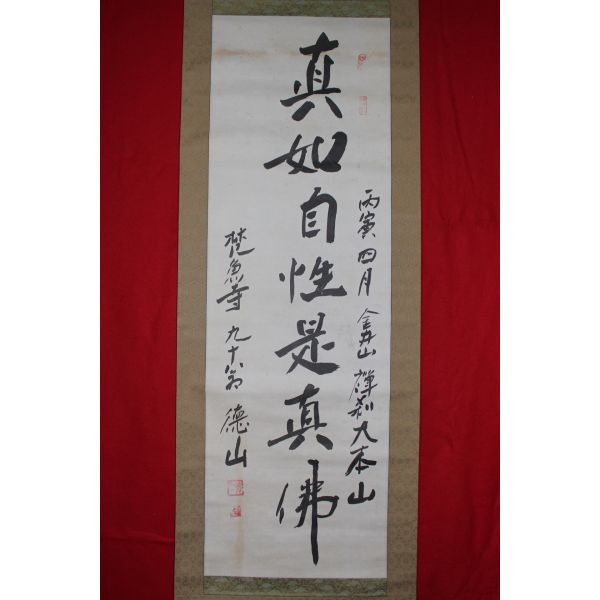 真如自性是真佛
丙寅四月 金井山 禪刹大本山
梵魚寺 九十翁 德山